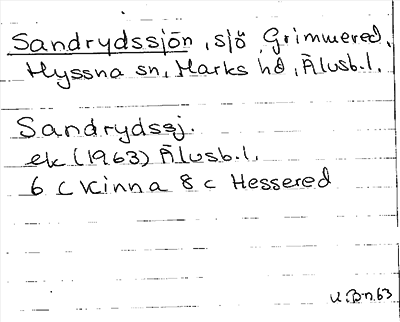 Sandrydssjön, sjö Grimmered,
Hyssna sn, Marks hd, Älvsb.l.
Sandrydssj.
ek (1963) Älvsb.l.
6 c Kinna 8 c Hessered